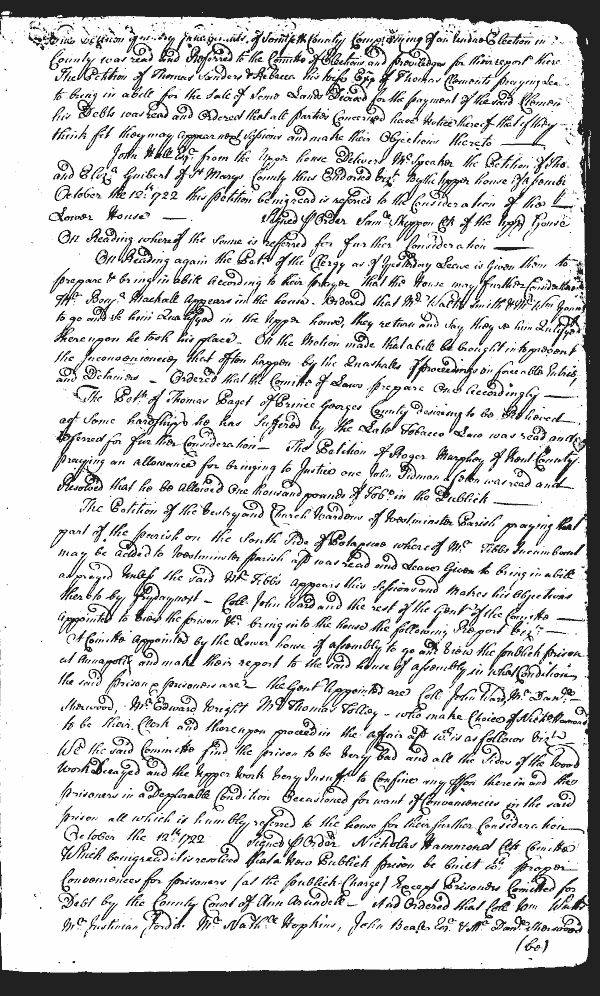 County was read and Referred to the Comitte of Elections and priviledges for their report there
The Petition of Thomas Sanders & Rebecca his wife Exrs of Thomas Clements praying Lea
to bring in a bill for the sale of some Lands for the payment of the said Clemen
his Debts was read and Ordered that all parties Concerned have Notice thereof that if they
think fit they may appear next Sessions and make their Objections thereto
John Hall Esqr. from the Upper house Delivers Mr. Speaker the Petition of Tho:
and Eliza Guibert of St Marys County thus Endorsed vizt. By the Upper house of Assembl
October the 12th 1722 this petition being read is referred to the Consideration of the
Lower House Signed p Order Saml Skippon Clk of the Uppr House
On Reading whereof the same is referred for further Consideration
On Reading again the Petn. of the Clergy as of Yesterday Leave is Given them to
prepare & bring in a bill According to their prayer that the House may further Consider
Mr. Benja. Mackall Appears in the house. Ordered that Mr. Walter Smith & Mr. Wm
to go and see him Qualifyed in the Upper house, they return and say they se him Qualifyd
thereupon he took his place On the Motion made that a bill be brought in to prevent
the Inconveniences that often happen by the Quashalls of proceedings on forceable Entries
and Detainers Ordered that the Comitte of Laws prepare One Accordingly
The Petn of Thomas Paget of Prince Georges County desireing to be Relieved
agt Some hardships he has Suffered by the Late Tobacco Law was read and
Referred for further Consideration The Petition of Roger Murphey of Kent County
praying an allowance for bringing to Justice one John was read and
Resolved that he be Allowed One thousand pounds of Tobo. in the Publick
The Petition of the Vestry and Church Wardens of Westminster Parish praying that
part of the parish on the South Side of Patapsco whereof Mr. Tibbs Incumbent
may be added to Westminster parish was read and Leave Given to bring in a bill
as prayed unless the said Mr. Tibbs appears this Sessions and Makes his Objections
thereto by fryday next Coll. John Ward and the rest of the Gentn of the Comitte
Appointed to view the prison &c. bring into the house the following Report vizt.
A Comitte Appointed by the Lower house of assembly to go and View the publick prison
at Annapolis and make their report to the said house of assembly in what Condition
the said prison & prisoners are. the Gent Appointed are Coll John Ward, Mr. Danl.
Sherwood, Mr. Edward Wright Mr Thomas Tolley who make Choice of Nichs Hamond
to be their Clerk and thereupon proceed in the affair afd wch. is as follows vizt
We the said Committe find the prison to be Very bad and all the Sides of the Wood
Work Decayed and the Upper Work Very Insufft to Confine any therein and the
prisoners in a Deplorable Condition Occasioned for want of Conveniencies in the said
prison all which is humbly referred to the house for their further Consideration
October the 12th 1722 Signed p Order Nicholas Hammond Clk Comitte
Which being read it is resolved that a New Publick prison be built wth proper
Conveniences for prisoners (at the publick Charge) Except Prisoners Comitted for
Debt by the County Court of Ann Arundell And Ordered that Coll Wm Watts
Mr. Mr. Nathl. Hopkins, John Beale Esqr & Mr Danl Sherwood
(be)